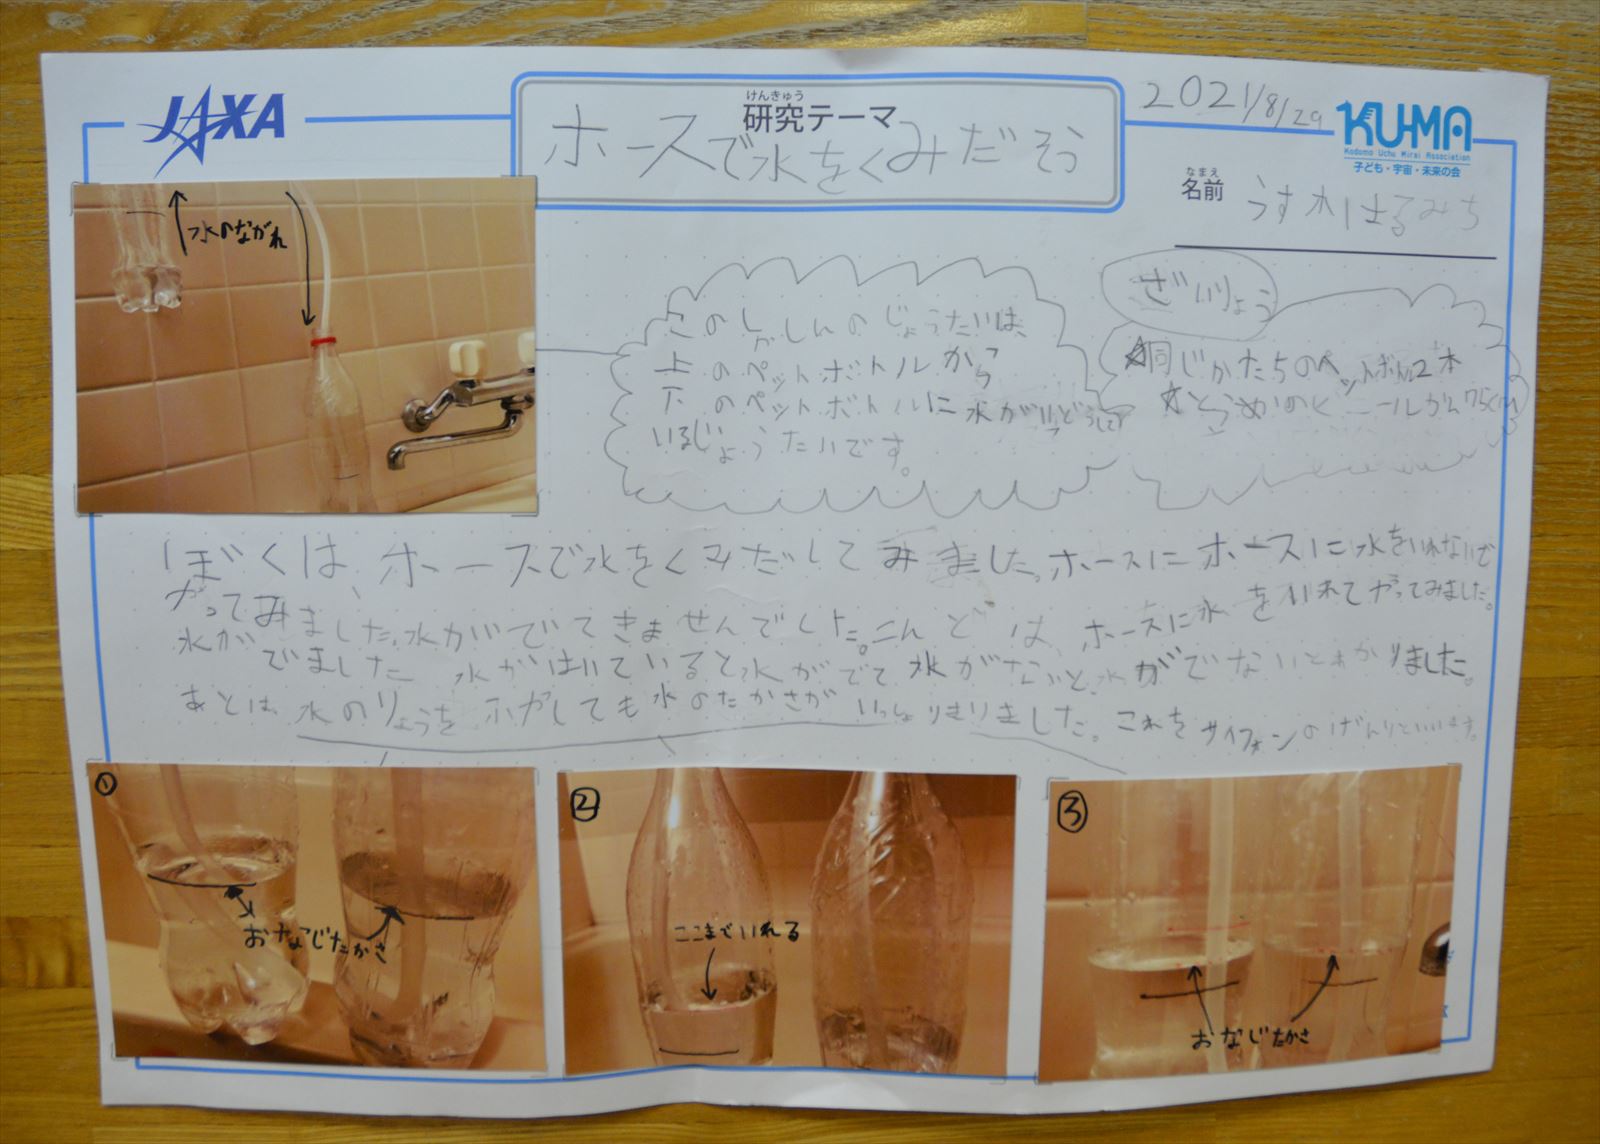 JAXA
けんきゅう
研究テーマ
ホースで水をくみだそう
2021/8/29
KU-MA
Kodomo Uchu Mirai Association
子ども・宇宙・未来の会
なまえ
名前
はるみち
水のながれ
ざいりょう
同じかたちのペットボトル2本
とうめいのビニールかん75cm
じょうたいは、
上のペットボトルから
下のペットボトルに水がいどうして
いるじょうたいです。
ぼくは、ホースで水をくみだしてみました。ホースにホースに水をいれないで
やってみました。水がでてきませんでした。こんどは、ホースに水をいれてやってみました。
水がでました 水がはいていると水がでて水がないと水がでないとわかりました。
あとは、水のりょうをふやしても水のたかさがいっしょりきりました。これをサイフォンのげんりといいます。
①
おなじたかさ
②
ここまでいれる
③
おなじたかさ